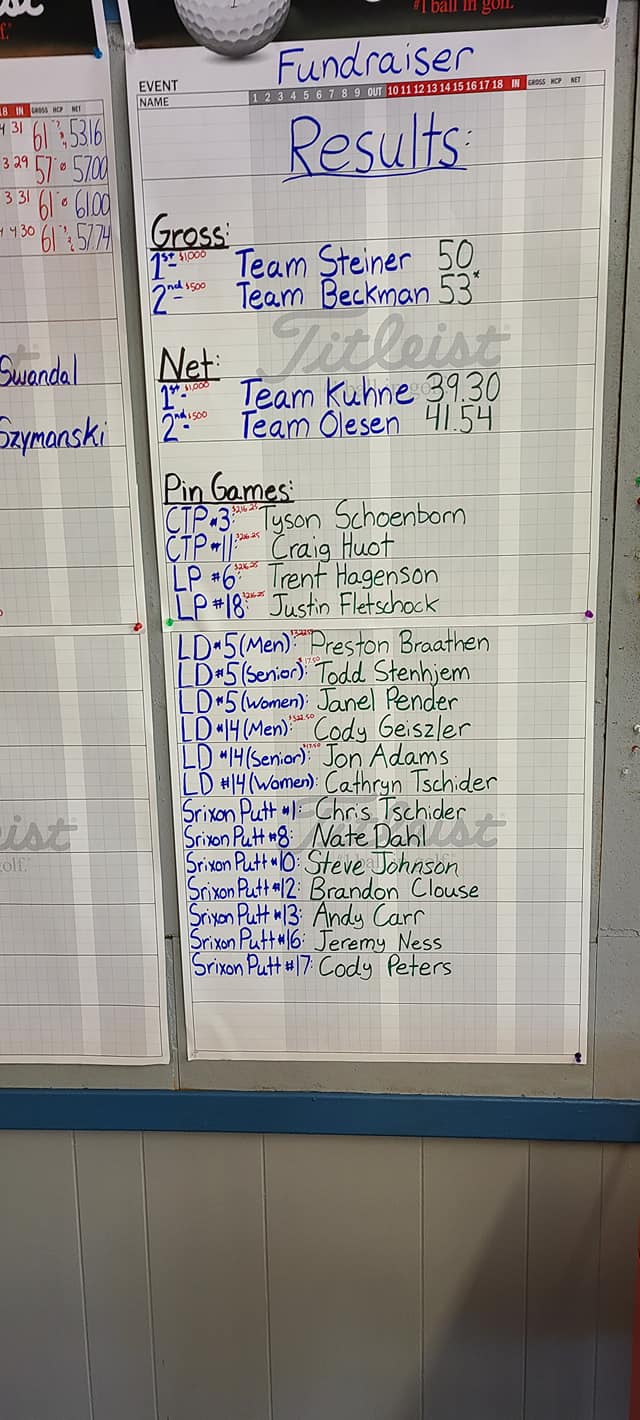 #1 ball in golf.
Fundraiser
EVENT
NAME 1 2 3 4 5 6 7 8 9 OUT 10 11 12 13 14 15 16 17 18 IN GROSS HCP NET
Results:
Gross:
1st- $1,000 Team Steiner 50
2nd- $500 Team Beckman 53*
Titleist
Net:
1st- $1,000 Team Kuhne 39.30
2nd- $500 Team Olesen 41.54
Pin Games:
CTP #3: $216.25 Tyson Schoenborn
CTP #11: $216.25 Craig Huot
LP #6: $216.25 Trent Hagenson
LP #18: $216.25 Justin Fletschock
LD #5 (Men): Preston Braathen
LD #5 (Senior): Todd Stenhjem
LD #5 (Women): Janel Pender
LD #14 (Men): $322.50 Cody Geiszler
LD #14 (Senior): Jon Adams
LD #14 (Women): Cathryn Tschider
Srixon Putt #1: Chris Tschider
Srixon Putt #8: Nate Dahl
Srixon Putt #10: Steve Johnson
Srixon Putt #12: Brandon Clouse
Srixon Putt #13: Andy Carr
Srixon Putt #16: Jeremy Ness
Srixon Putt #17: Cody Peters
18 IN GROSS HCP NET
4 31 61 53.16
3 29 57 57.00
3 31 61 61.00
4 30 61 57.74
Swandal
Szymanski
eist
golf.